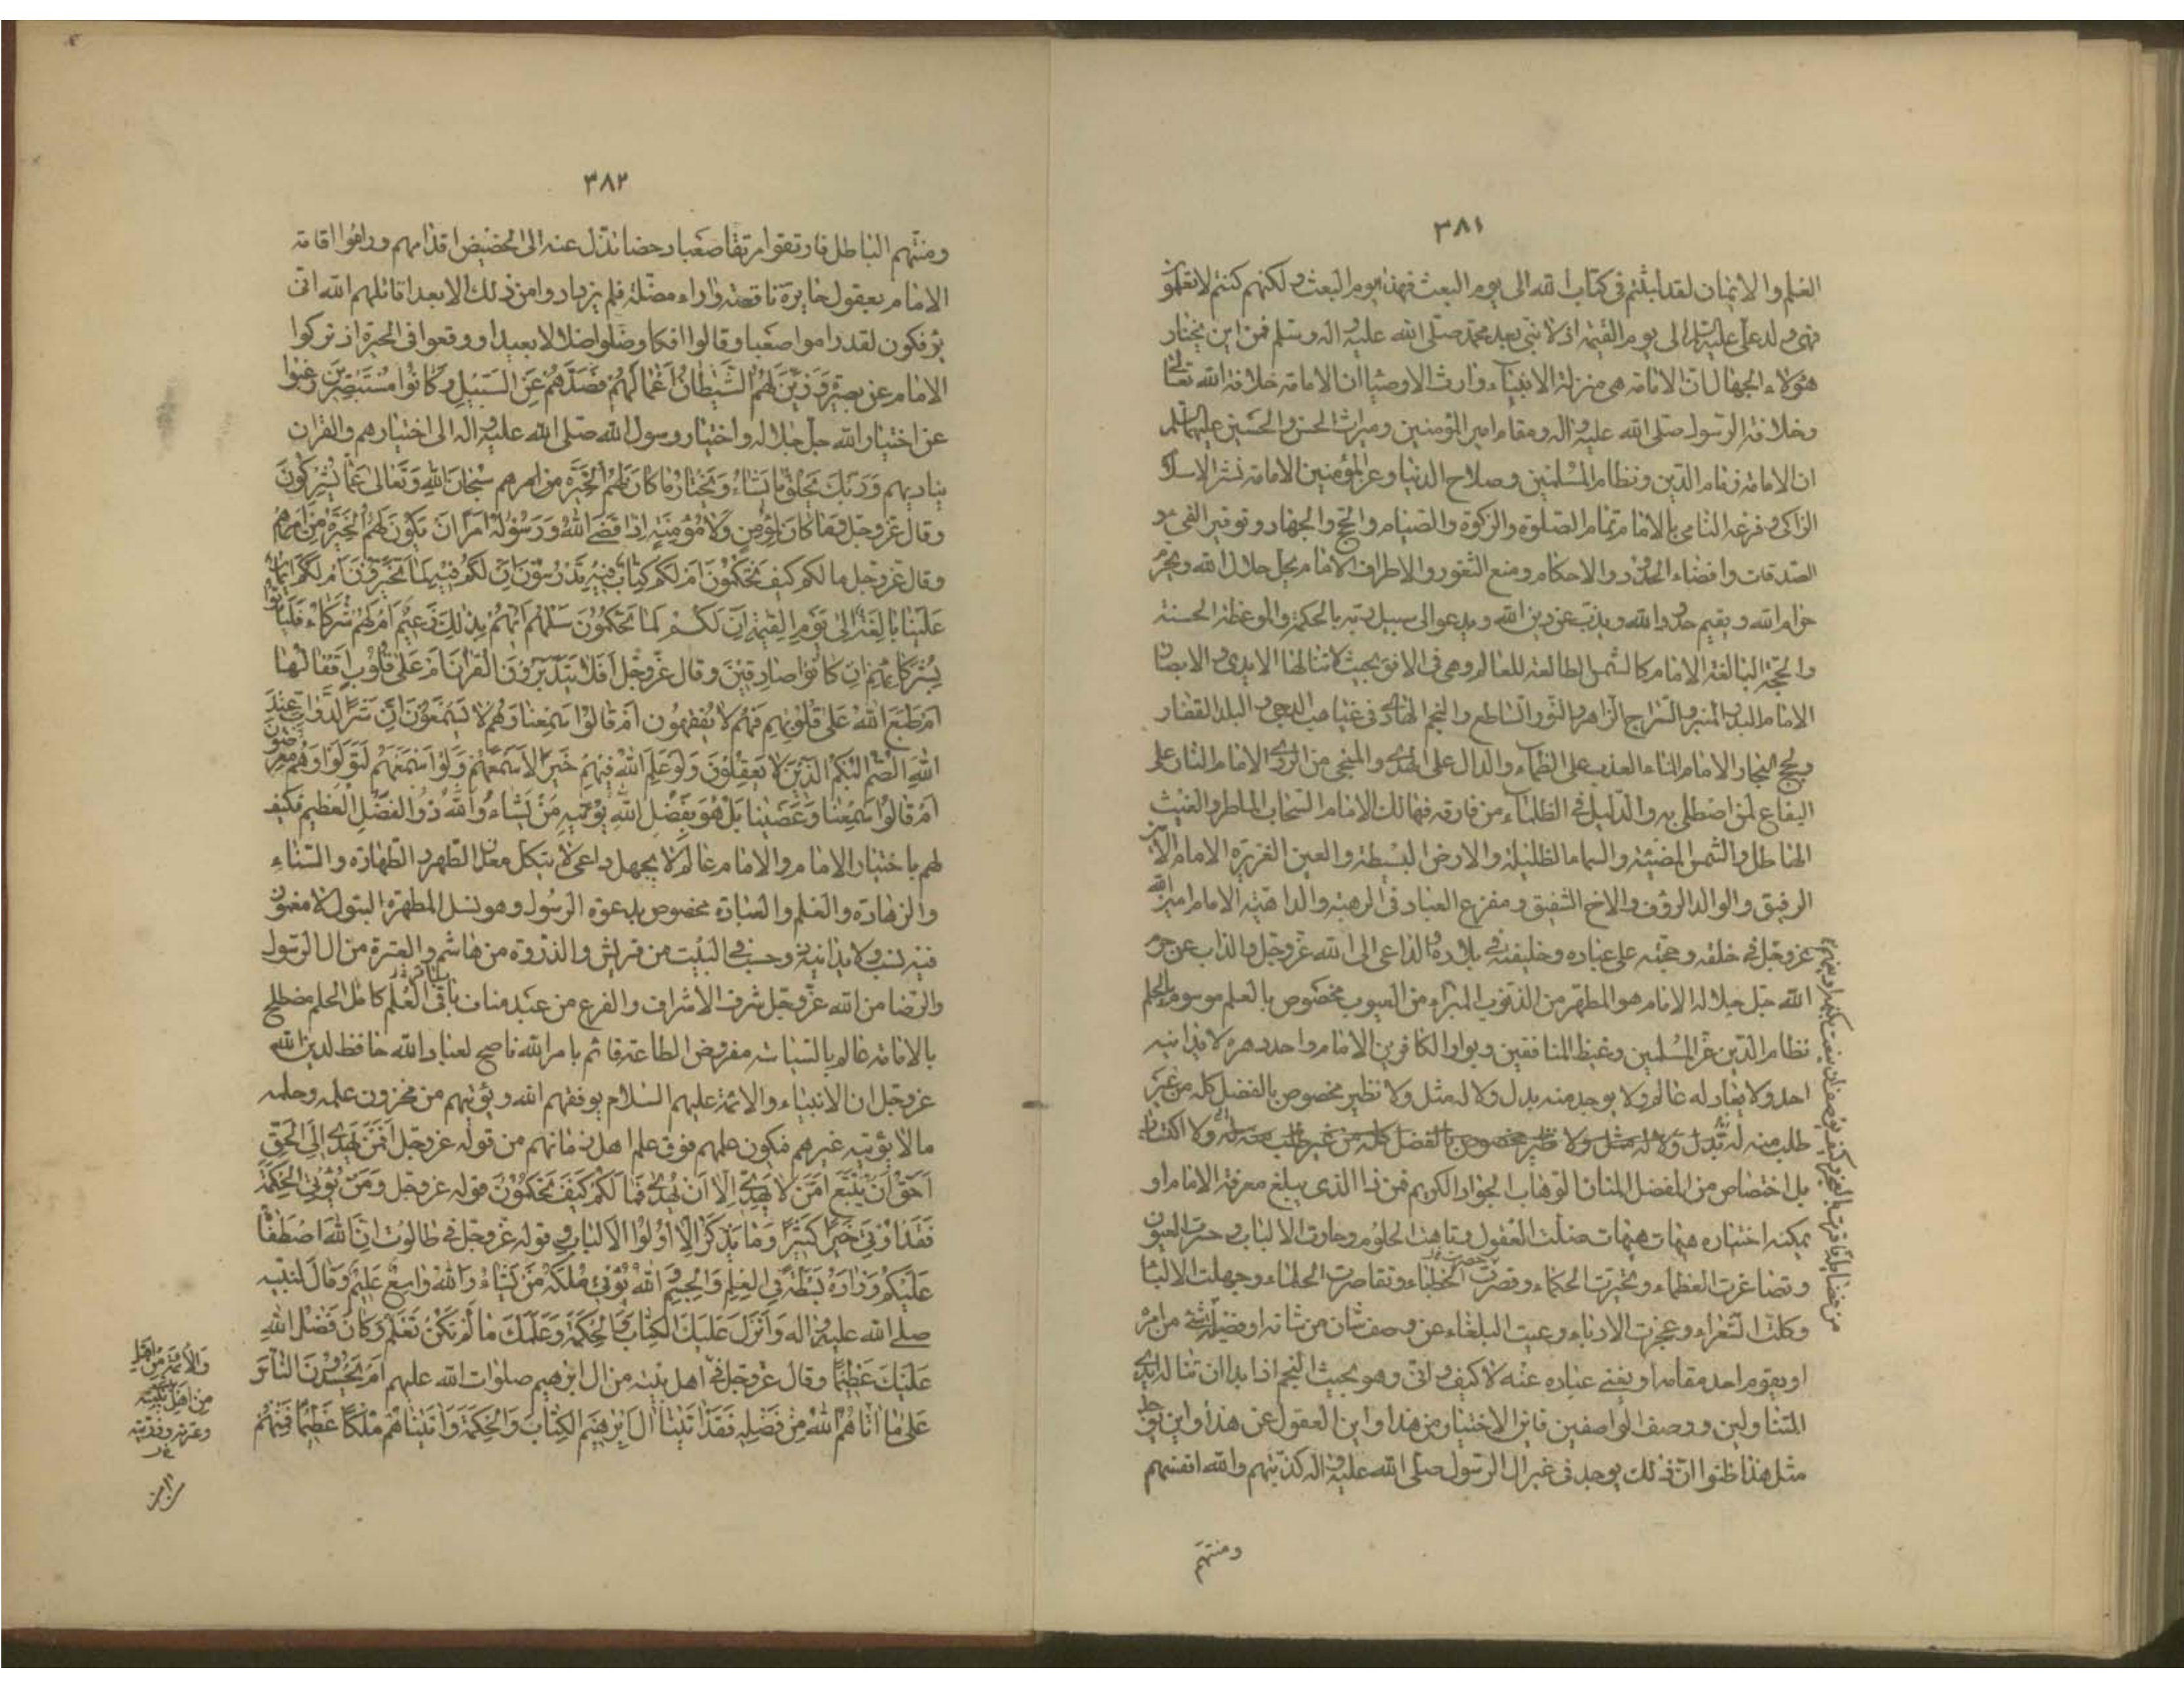 ٣٨١
العلم والايمان لقد لبثتم فى كتاب الله الى يوم البعث فهذا يوم البعث ولكنهم كنتم لا تعلمون
فهى ولد على عليه السلام الى يوم القيمة اذ لا نبى بعد محمد صلى الله عليه واله وسلم فمن اين يختار
هؤلاء الجهال ان الامامة هى منزلة الانبياء وارث الاوصياء ان الامامة خلافة الله تعالى
وخلافة الرسول صلى الله عليه واله ومقام امير المؤمنين وميراث الحسن والحسين عليهما السلم
ان الامامة زمام الدين ونظام المسلمين وصلاح الدنيا وعز المؤمنين الامامة نشر الاسلام
الزاكى وفرعه النامى بالامام تمام الصلوة والزكوة والصيام والحج والجهاد وتوفير الفىء و
الصدقات وامضاء الحدود والاحكام ومنع الثغور والاطراف الامام يحل حلال الله ويحرم
حرام الله ويقيم حدود الله ويذب عن دين الله ويدعو الى سبيل ربه بالحكمة والموعظة الحسنة
والحجة البالغة الامام كالشمس الطالعة للعالم وهى فى الافق بحيث لا تنالها الايدى والابصار
الامام البدر المنير والسراج الزاهر والنور الساطع والنجم الهادى فى غياهب الدجى والبلد القفار
ولجج البحار الامام الماء العذب على الظماء والدال على الهدى والمنجى من الردى الامام النار على
اليفاع لمن اصطلى به والدليل فى الظلماء من فارقه فهالك الامام السحاب الماطر والغيث
الهاطل والشمس المضيئة والسماء الظليلة والارض البسيطة والعين الغزيرة الامام الامين
الرفيق والوالد الرؤف والاخ الشفيق ومفزع العباد فى الرهبة والداهية الامام امين الله
عز وجل فى خلقه وحجته على عباده وخليفته فى بلاده والداعى الى الله عز وجل والذاب عن حرم
الله جل جلاله الامام هو المطهر من الذنوب المبراء من العيوب مخصوص بالعلم موسوم بالحلم
نظام الدين عز المسلمين وغيظ المنافقين وبوار الكافرين الامام واحد دهره لا يدانيه
احد ولا يعادله عالم ولا يوجد منه بدل ولا له مثل ولا نظير مخصوص بالفضل كله من غير
طلب منه له بدل ولا له مثل ولا نظير مخصوص بالفضل كله من غير طلب منه له ولا اكتساب
بل اختصاص من المفضل المنان الوهاب الجواد الكريم فمن ذا الذى يبلغ معرفة الامام او
يمكنه اختياره هيهات هيهات ضلت العقول وتاهت الحلوم وحارت الالباب وحسرت العيون
وتصاغرت العظماء وتحيرت الحكماء وقصرت الخطباء وتقاصرت الحلماء وجهلت الالباء
وكلت الشعراء وعجزت الادباء وعييت البلغاء عن وصف شان من شانه او فضيلة شئ من امره
او يقوم احد مقامه او يغنى عباده عنه لا كيف وانى وهو بحيث النجم اذا بدا ان تناله ايدى
المتناولين ووصف الواصفين فاين الاختيار من هذا واين العقول عن هذا واين يوجد
مثل هذا ظنوا ان ذلك يوجد فى غير ال الرسول صلى الله عليه واله كذبتهم والله انفسهم
ومنتهم
٣٨٢
ومنتهم الباطل فارتقوا مرتقا صعبا دحضا تزل عنه الى الحضيض اقدامهم وراموا اقامة
الامام بعقول حايرة ناقصة واراء مضلة فلم يزدادوا من ذلك الا بعدا قاتلهم الله انى
يؤفكون لقد راموا صعبا وقالوا افكا وضلوا ضلالا بعيدا ووقعوا فى الحيرة اذ تركوا
الامام عن بصيرة وزين لهم الشيطان اعمالهم فصدهم عن السبيل وكانوا مستبصرين رغبوا
عن اختيار الله جل جلاله واختيار رسول الله صلى الله عليه واله الى اختيارهم والقران
يناديهم وربك يخلق ما يشاء ويختار ما كان لهم الخيرة من امرهم سبحان الله وتعالى عما يشركون
وقال عز وجل وما كان لمؤمن ولا مؤمنة اذا قضى الله ورسوله امرا ان يكون لهم الخيرة من امرهم
وقال عز وجل ما لكم كيف تحكمون ام لكم كتاب فيه تدرسون ان لكم فيه لما تخيرون ام لكم ايمان
علينا بالغة الى يوم القيمة ان لكم لما تحكمون سلهم ايهم بذلك زعيم ام لهم شركاء فلياتوا
بشركائهم ان كانوا صادقين وقال عز وجل افلا يتدبرون القران ام على قلوب اقفالها
ام طبع الله على قلوبهم فهم لا يفقهون ام قالوا سمعنا وهم لا يسمعون ان شر الدواب عند
الله الصم البكم الذين لا يعقلون ولو علم الله فيهم خيرا لاسمعهم ولو اسمعهم لتولوا وهم معرضون
ام قالوا سمعنا وعصينا بل هو بفضل الله يؤتيه من يشاء والله ذو الفضل العظيم فكيف
لهم باختيار الامام والامام عالم لا يجهل داعى لا ينكل معدن الطهر والطهارة والسناء
والزهادة والعلم والعبادة مخصوص بدعوة الرسول وهو نسل المطهرة البتول لا مغمز
فيه بنسب ولا يدانيه ذو حسب فى البيت من قريش والذروة من هاشم والعترة من ال الرسول
والرضا من الله عز وجل شرف الاشراف والفرع من عبد مناف باقى العلم كامل الحلم مضطلع
بالامامة عالم بالسياسة مفروض الطاعة قائم بامر الله ناصح لعباد الله حافظ لدين الله
عز وجل ان الانبياء والائمة عليهم السلام يوفقهم الله ويؤتيهم من مخزون علمه وحلمه
مالا يؤتيه غيرهم فيكون علمهم فوق علم اهل زمانهم من قوله عز وجل افمن يهدى الى الحق
احق ان يتبع امن لا يهدى الا ان يهدى فما لكم كيف تحكمون وقوله عز وجل ومن يؤتى الحكمة
فقد اوتى خيرا كثيرا وما يذكر الا اولوا الالباب وقوله عز وجل فى طالوت ان الله اصطفاه
عليكم وزاده بسطة فى العلم والجسم والله يؤتى ملكه من يشاء والله واسع عليم وقال لنبيه
صلى الله عليه واله وانزل عليك الكتاب والحكمة وعلمك ما لم تكن تعلم وكان فضل الله
عليك عظيما وقال عز وجل فى اهل بيته من ال ابرهيم صلوات الله عليهم ام يحسدون الناس
على ما اتاهم الله من فضله فقد اتينا ال ابرهيم الكتاب والحكمة واتيناهم ملكا عظيما فمنهم
والائمة من اهل
من اهل بيته
وعترته وذريته